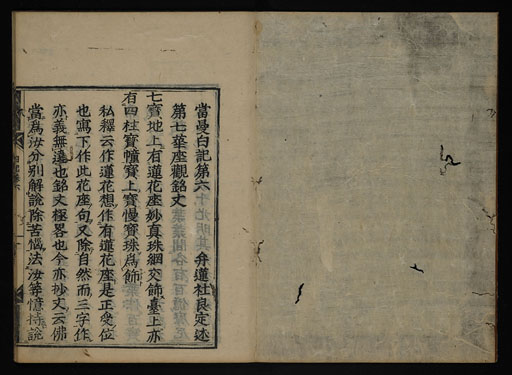 當曼白記第六 弁蓮社良定述
第七華座觀銘文
七寶地上有蓮花座妙真珠網交飾臺上亦
有四柱寶幢寶上寶慢寶珠爲飾
私釋云作蓮花想作有蓮花座是正受位
也寫下作此花座句又除自然而三字作
亦義無違也銘文極畧也今亦抄文云佛
當爲汝分別解說除苦惱法汝等憶持說